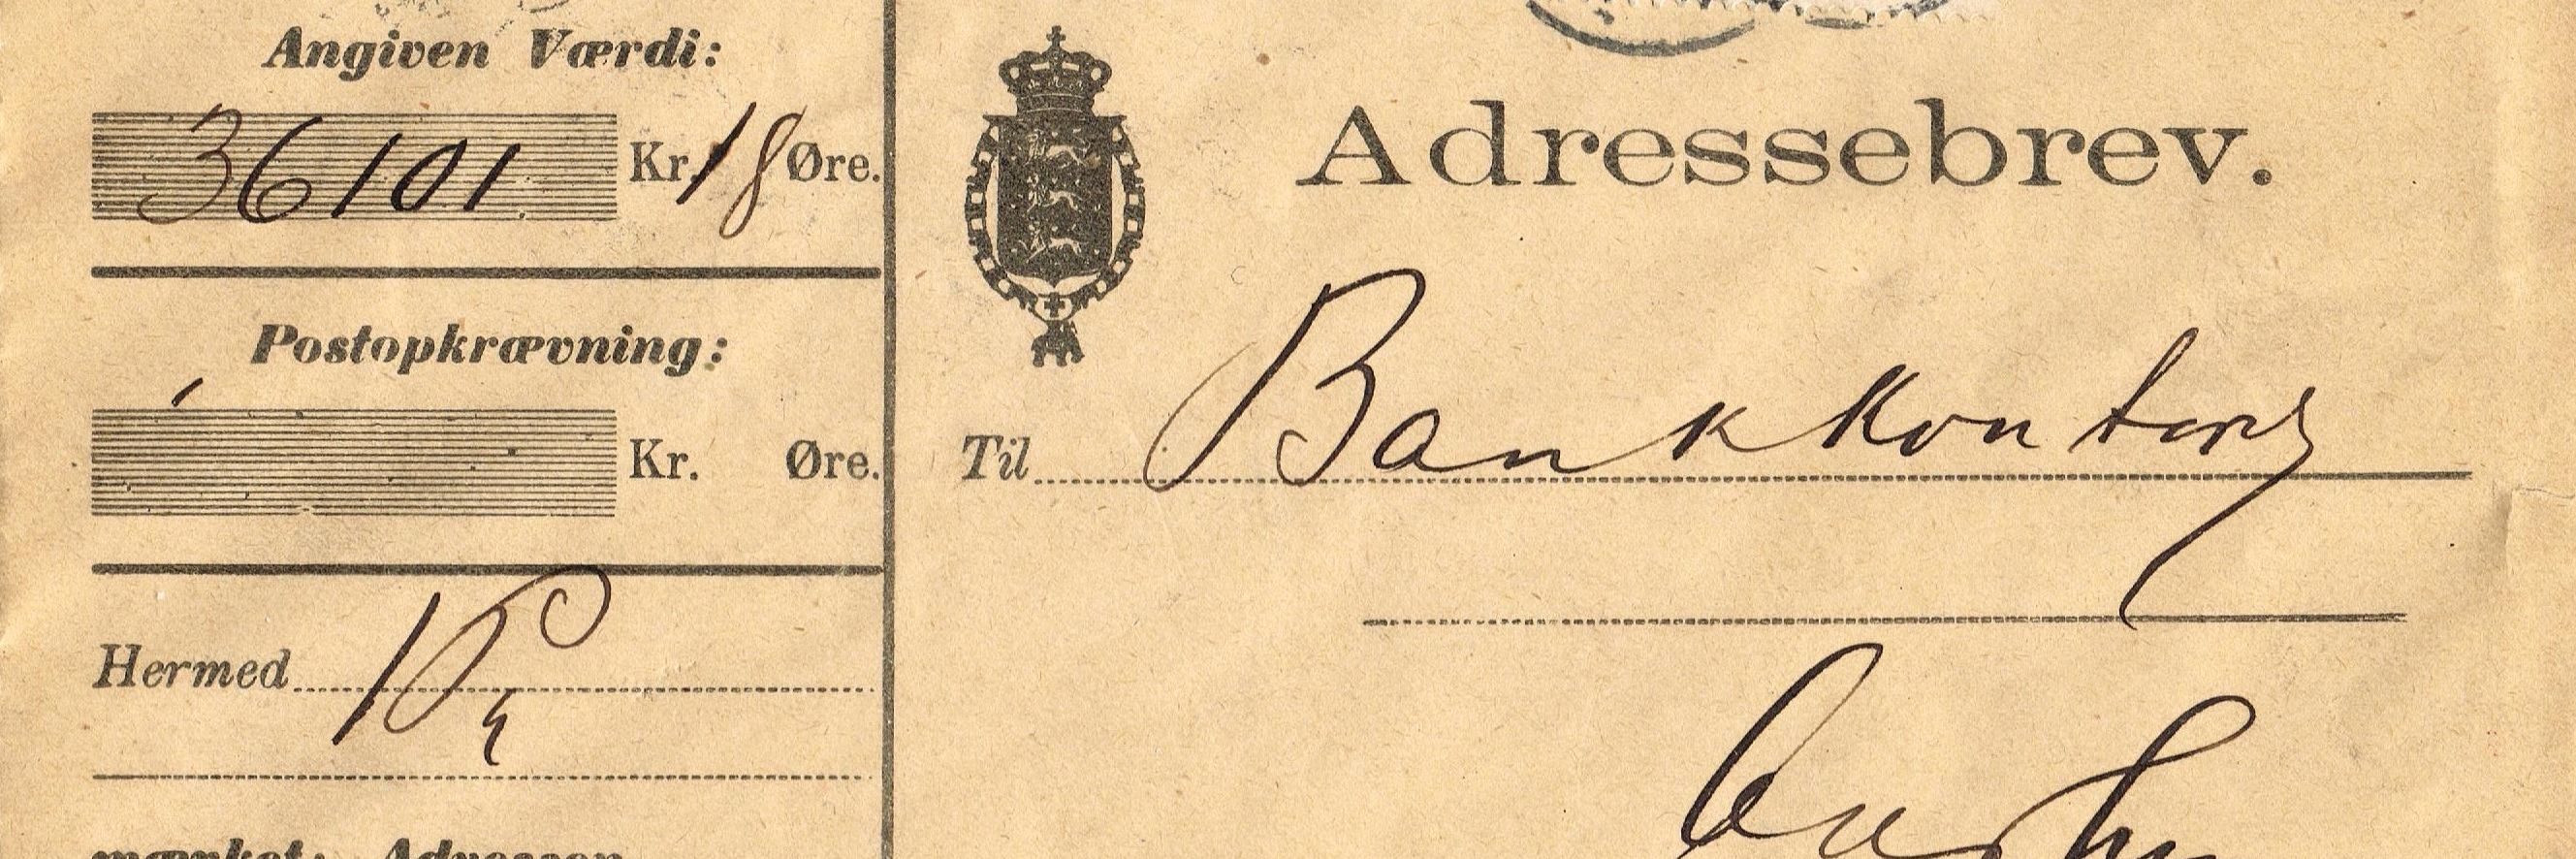 Angiven Værdi:
36101 Kr. 18 Øre.
Postopkrævning:
Kr. Øre.
Hermed
mærket: Adressen
Adressebrev.
Til Bankkontoret